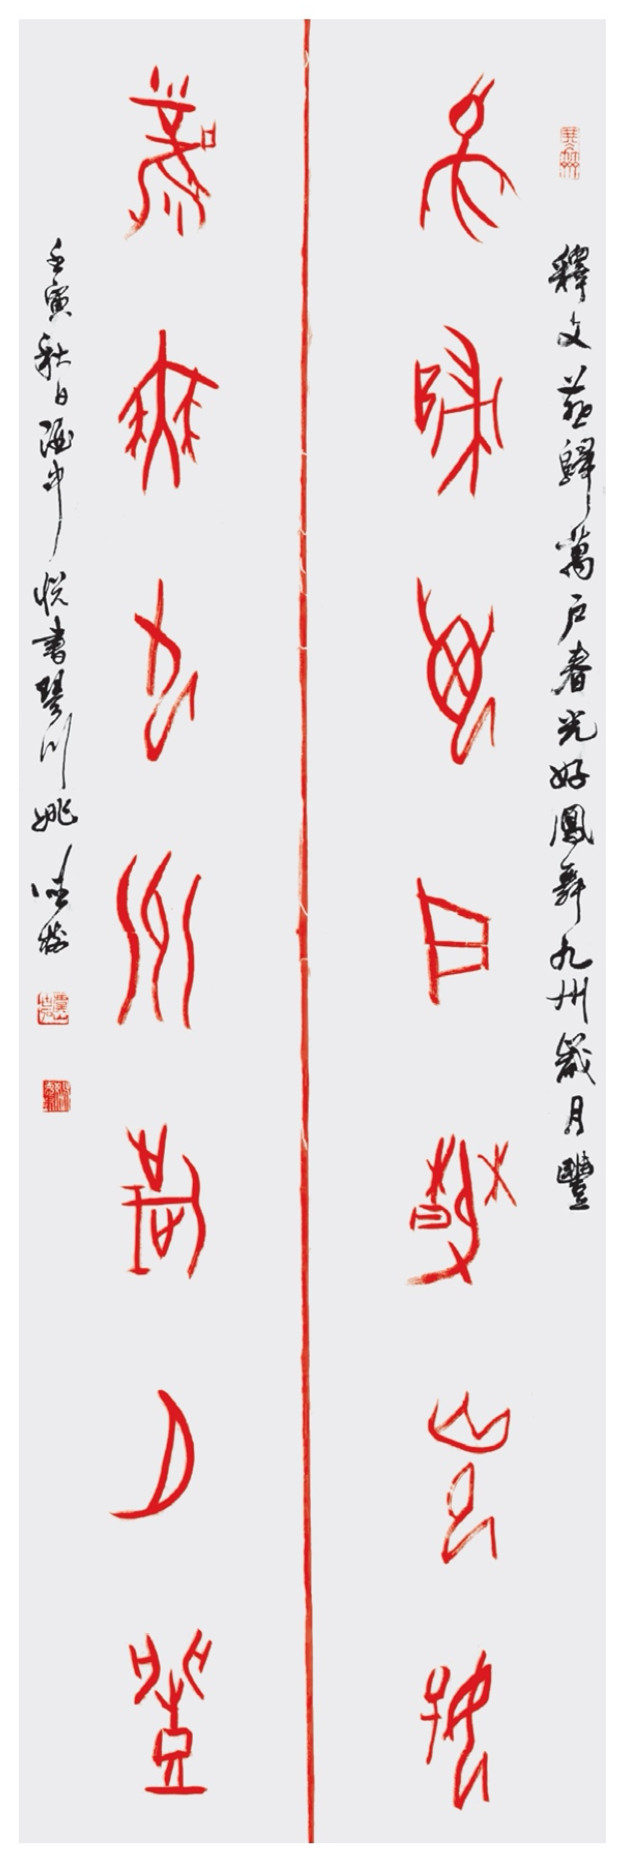 釋文燕歸萬戶春光好鳳舞九州歲月豐
燕歸萬戶春光好
鳳舞九州歲月豐
壬寅秋日悅書琴川姚